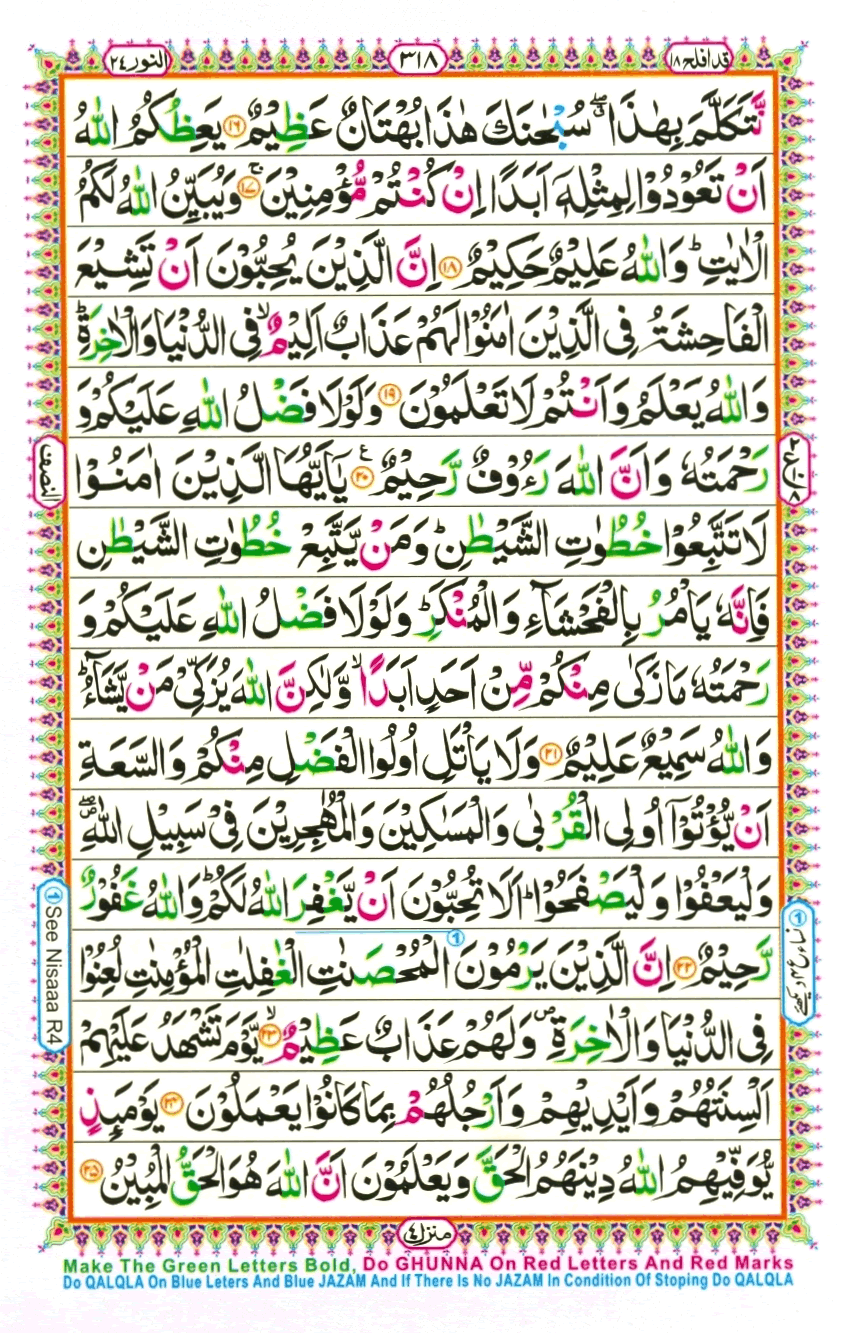 قدافلح ١٨
٣١٨
النور ٢٤
نَّتَكَلَّمَ بِهٰذَا ۖ سُبْحٰنَكَ هٰذَا بُهْتَانٌ عَظِيْمٌ ۝١٦ يَعِظُكُمُ اللّٰهُ
اَنْ تَعُوْدُوْا لِمِثْلِهٖٓ اَبَدًا اِنْ كُنْتُمْ مُّؤْمِنِيْنَ ۚ۝١٧ وَيُبَيِّنُ اللّٰهُ لَكُمُ
الْاٰيٰتِ ؕ وَاللّٰهُ عَلِيْمٌ حَكِيْمٌ ۝١٨ اِنَّ الَّذِيْنَ يُحِبُّوْنَ اَنْ تَشِيْعَ
الْفَاحِشَةُ فِى الَّذِيْنَ اٰمَنُوْا لَهُمْ عَذَابٌ اَلِيْمٌ ۙ فِى الدُّنْيَا وَالْاٰخِرَةِ ؕ
وَاللّٰهُ يَعْلَمُ وَاَنْتُمْ لَا تَعْلَمُوْنَ ۝١٩ وَلَوْلَا فَضْلُ اللّٰهِ عَلَيْكُمْ وَ
رَحْمَتُهٗ وَاَنَّ اللّٰهَ رَءُوْفٌ رَّحِيْمٌ ۝٢٠ ع يٰٓاَيُّهَا الَّذِيْنَ اٰمَنُوْا
لَا تَتَّبِعُوْا خُطُوٰتِ الشَّيْطٰنِ ؕ وَمَنْ يَّتَّبِعْ خُطُوٰتِ الشَّيْطٰنِ
فَاِنَّهٗ يَاْمُرُ بِالْفَحْشَآءِ وَالْمُنْكَرِ ؕ وَلَوْلَا فَضْلُ اللّٰهِ عَلَيْكُمْ وَ
رَحْمَتُهٗ مَا زَكٰى مِنْكُمْ مِّنْ اَحَدٍ اَبَدًا ۙ وَّلٰكِنَّ اللّٰهَ يُزَكِّىْ مَنْ يَّشَآءُ ؕ
وَاللّٰهُ سَمِيْعٌ عَلِيْمٌ ۝٢١ وَلَا يَاْتَلِ اُولُوا الْفَضْلِ مِنْكُمْ وَالسَّعَةِ
اَنْ يُّؤْتُوْٓا اُولِى الْقُرْبٰى وَالْمَسٰكِيْنَ وَالْمُهٰجِرِيْنَ فِىْ سَبِيْلِ اللّٰهِ ۖ
وَلْيَعْفُوْا وَلْيَصْفَحُوْا ؕ اَلَا تُحِبُّوْنَ اَنْ يَّغْفِرَ اللّٰهُ لَكُمْ ؕ وَاللّٰهُ غَفُوْرٌ
رَّحِيْمٌ ۝٢٢ اِنَّ الَّذِيْنَ يَرْمُوْنَ ① الْمُحْصَنٰتِ الْغٰفِلٰتِ الْمُؤْمِنٰتِ لُعِنُوْا
فِى الدُّنْيَا وَالْاٰخِرَةِ ۪ وَلَهُمْ عَذَابٌ عَظِيْمٌ ۙ۝٢٣ يَّوْمَ تَشْهَدُ عَلَيْهِمْ
اَلْسِنَتُهُمْ وَاَيْدِيْهِمْ وَاَرْجُلُهُمْ بِمَا كَانُوْا يَعْمَلُوْنَ ۝٢٤ يَوْمَئِذٍ
يُّوَفِّيْهِمُ اللّٰهُ دِيْنَهُمُ الْحَقَّ وَيَعْلَمُوْنَ اَنَّ اللّٰهَ هُوَ الْحَقُّ الْمُبِيْنُ ۝٢٥
النصف
① See Nisaaa R4
منزل ٤
Make The Green Letters Bold, Do GHUNNA On Red Letters And Red Marks
Do QALQLA On Blue Leters And Blue JAZAM And If There Is No JAZAM In Condition Of Stoping Do QALQLA